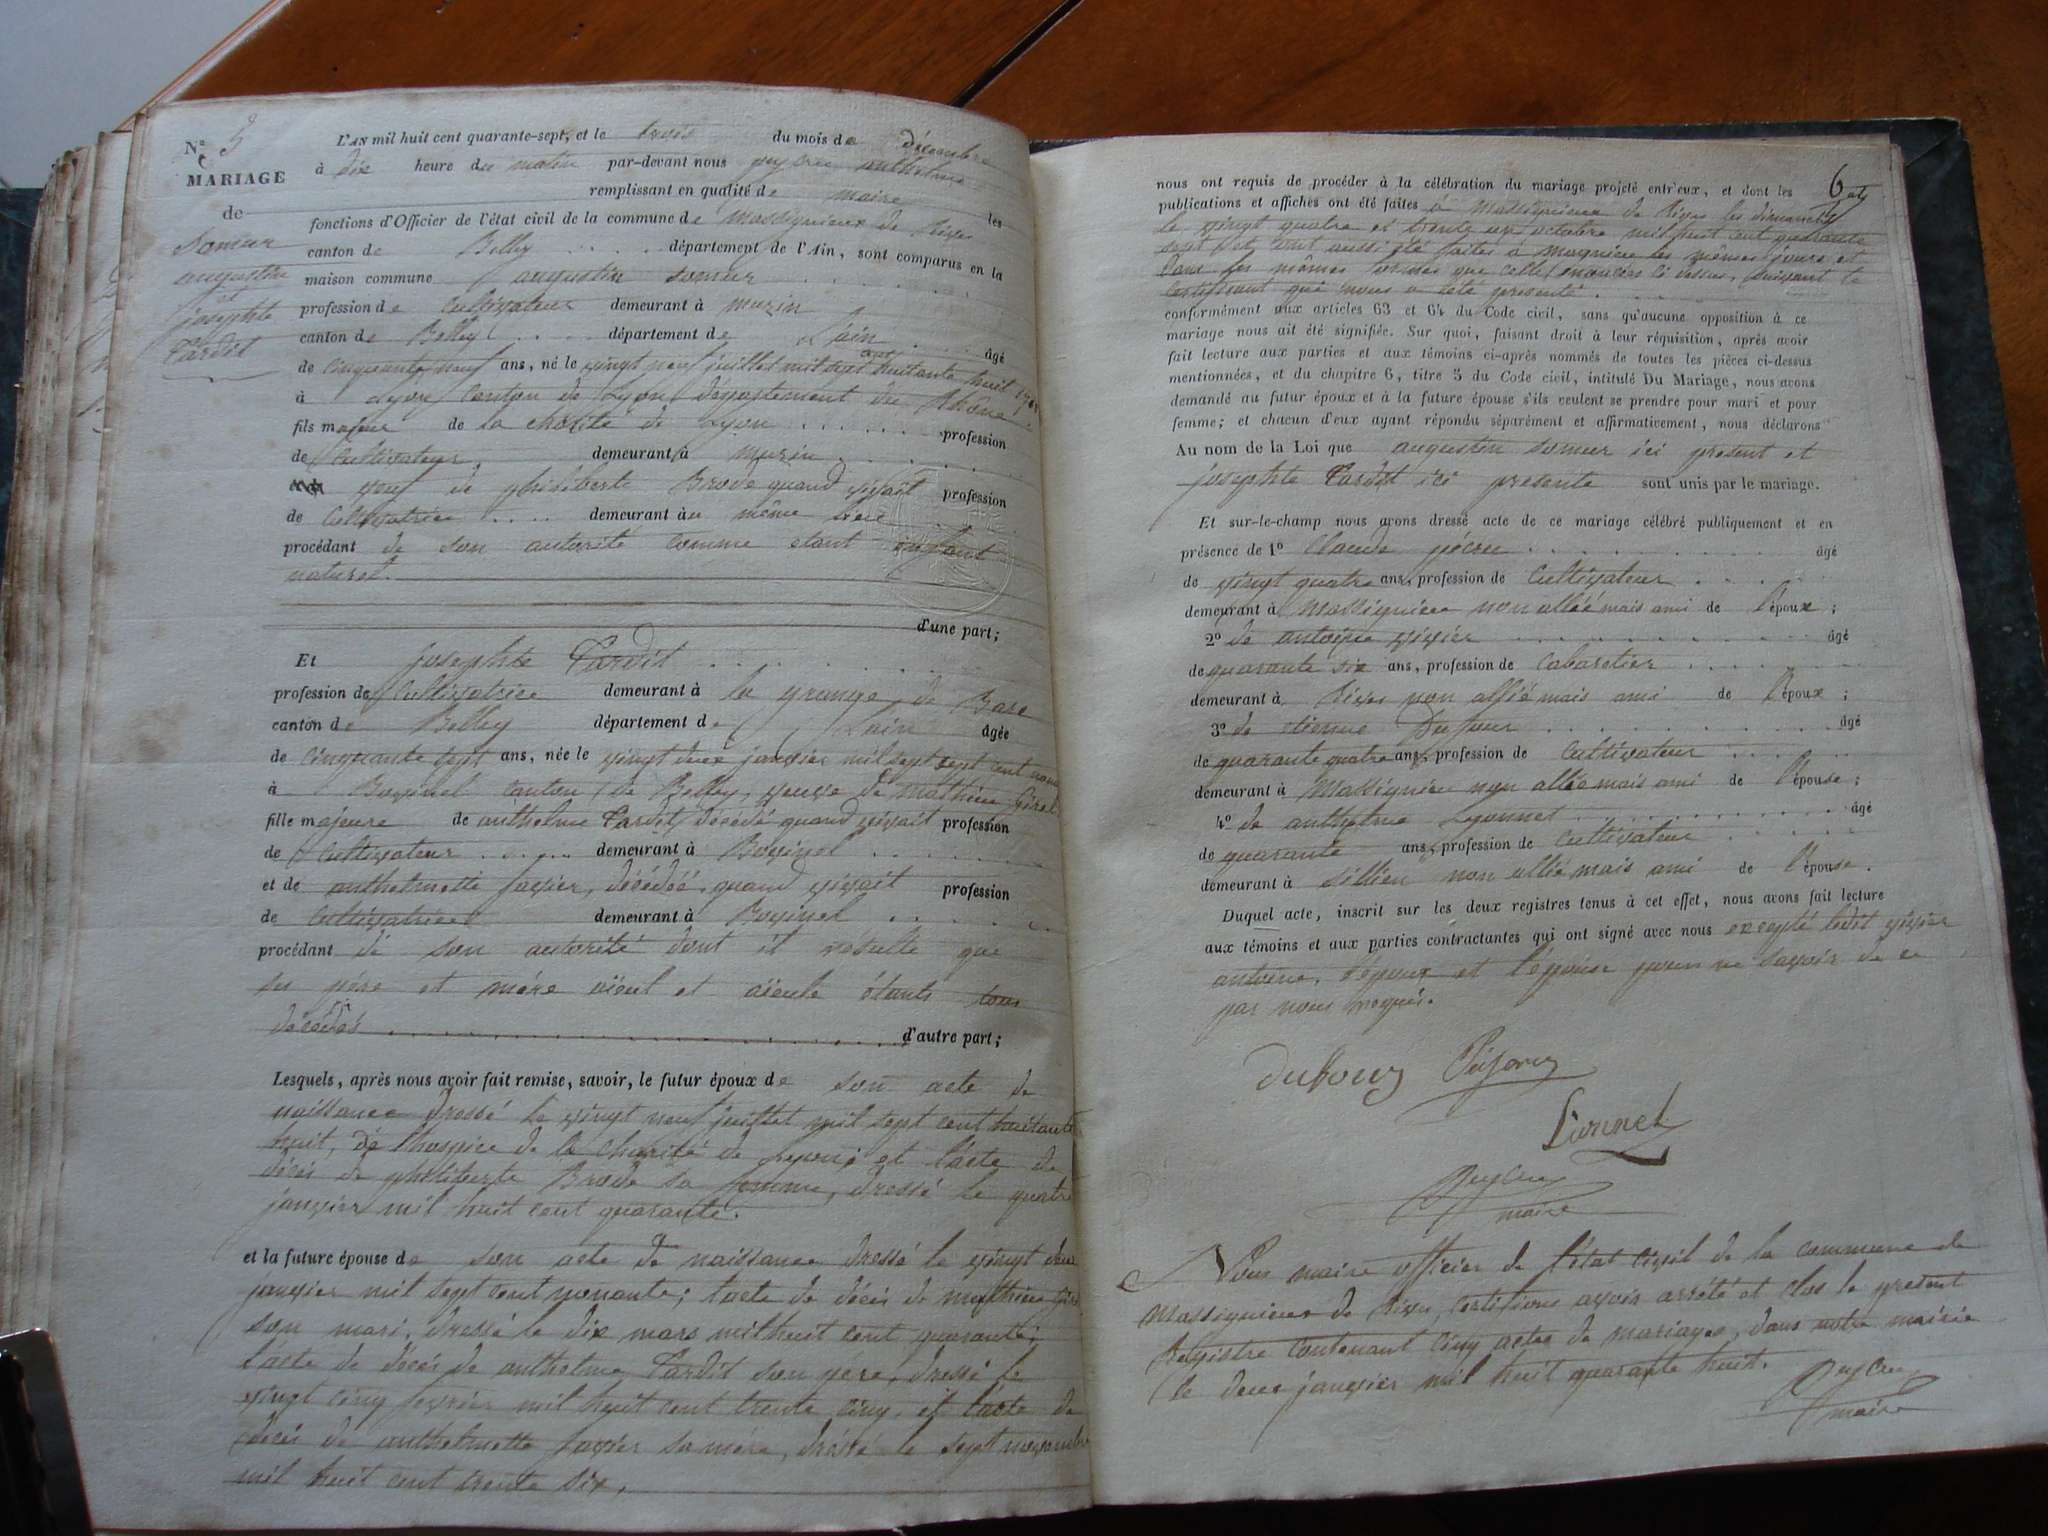 N.° 5
MARIAGE
de
Somur
augustin
et
josephte
Tardit
L'AN mil huit cent quarante-sept, et le trois du mois de décembre
à dix heure du matin par-devant nous anthelme
remplissant en qualité de maire les
fonctions d'Officier de l'état civil de la commune de Massignieux de Rives
canton de Belley département de l'Ain, sont comparus en la
maison commune augustin somur
profession de Cultivateur demeurant à murin
canton de Belley département de Lain âgé
de cinquante neuf ans, né le vingt neuf juillet mil sept cent huitante huit
à Lyon Canton de Lyon département du Rhône
fils majeur de la charité de Lyon profession
de Cultivateur demeurant à murin
veuf de philiberte Brode quand vivait profession
de Cultivatrice demeurant au même lieu
procédant de son autorité comme etant enfant
naturel.
d'une part;
Et josephte Tardit
profession de Cultivatrice demeurant à la grange de Bare
canton de Belley département de Lain âgée
de cinquante sept ans, née le vingt deux janvier mil sept sept cent nonante
à Bovinel Canton de Belley, veuve de Mathieu
fille majeure de anthelme Tardit décédé quand vivait profession
de Cultivateur demeurant à Bovinel
et de anthelmette favier, décédéé, quand vivait profession
de Cultivatrice demeurant à Bovinel
procédant de son autorité dont il résulte que
ses père et mère aïeul et aïeule étants tous
décédés d'autre part;
Lesquels, après nous avoir fait remise, savoir, le futur époux de son acte de
naissance dressé le vingt neuf juillet mil sept cent huitante
huit, de l'hospice de la Charité de Lyon; et l'acte de
décés de philiberte Brode sa femme, dressé le quatre
janvier mil huit cent quarante.
et la future épouse de son acte de naissance dressé le vingt deux
janvier mil sept cent nonante; l'acte de décés de mathieu
son mari, dressé le dix mars mil huit cent quarante;
l'acte de décés de anthelme Tardit son père, dressé le
vingt cinq fevrier mil huit cent trente cinq, et l'acte de
décés de anthelmette favier sa mére, dréssé le sept novembre
mil huit cent trente six,
6
nous ont requis de procéder à la célébration du mariage projeté entr'eux, et dont les
publications et affiches ont été faites à Massignieux de Rives les dimanches
le vingt quatre et trente un octobre mil huit cent quarante
sept et ont aussi été faites à les mêmes jours et
dans les mêmes formes que celles énoncées ci dessus, suivant le
certificat qui nous a été presenté.
conformément aux articles 63 et 64 du Code civil, sans qu'aucune opposition à ce
mariage nous ait été signifiée. Sur quoi, faisant droit à leur réquisition, après avoir
fait lecture aux parties et aux témoins ci-après nommés de toutes les pièces ci-dessus
mentionnées, et du chapitre 6, titre 5 du Code civil, intitulé Du Mariage, nous avons
demandé au futur époux et à la future épouse s'ils veulent se prendre pour mari et pour
femme; et chacun d'eux ayant répondu séparément et affirmativement, nous déclarons
Au nom de la Loi que augustin somur ici present et
josephte Tardit ici presente sont unis par le mariage.
Et sur-le-champ nous avons dressé acte de ce mariage célébré publiquement et en
présence de 1° Claude âgé
de vingt quatre ans, profession de Cultivateur
demeurant à Massignieu non allié mais ami de l'époux;
2° de antoine vivier âgé
de quarante six ans, profession de Cabaretier
demeurant à Rives non allié mais ami de l'époux;
3° de étienne Dufour âgé
de quarante quatre ans, profession de Cultivateur
demeurant à Massignieu non allié mais ami de l'épouse;
4° de anthelme Lyonnet âgé
de quarante ans, profession de Cultivateur
demeurant à Sillien non allié mais ami de l'épouse.
Duquel acte, inscrit sur les deux registres tenus à cet effet, nous avons fait lecture
aux témoins et aux parties contractantes qui ont signé avec nous excepté ledit vivier
antoine, l'époux et l'épouse pour ne savoir de ce
par nous enquis.
dufour
Lionnet
maire
Nous maire officier de l'état civil de la commune de
Massignieux de Rives, certifions avoir arrêté et clos le present
Registre contenant cinq actes de mariages, dans notre mairie
le deux janvier mil huit quarante huit.
maire